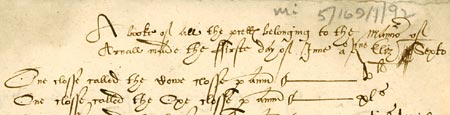 mi 5/169/1/92
A booke of all the belonging to the Mannor of
Arnall made the ffirste day of June Eliz Sexto
One closse called the Cowe closse p ann
One closse called the Oxe closse p ann xls